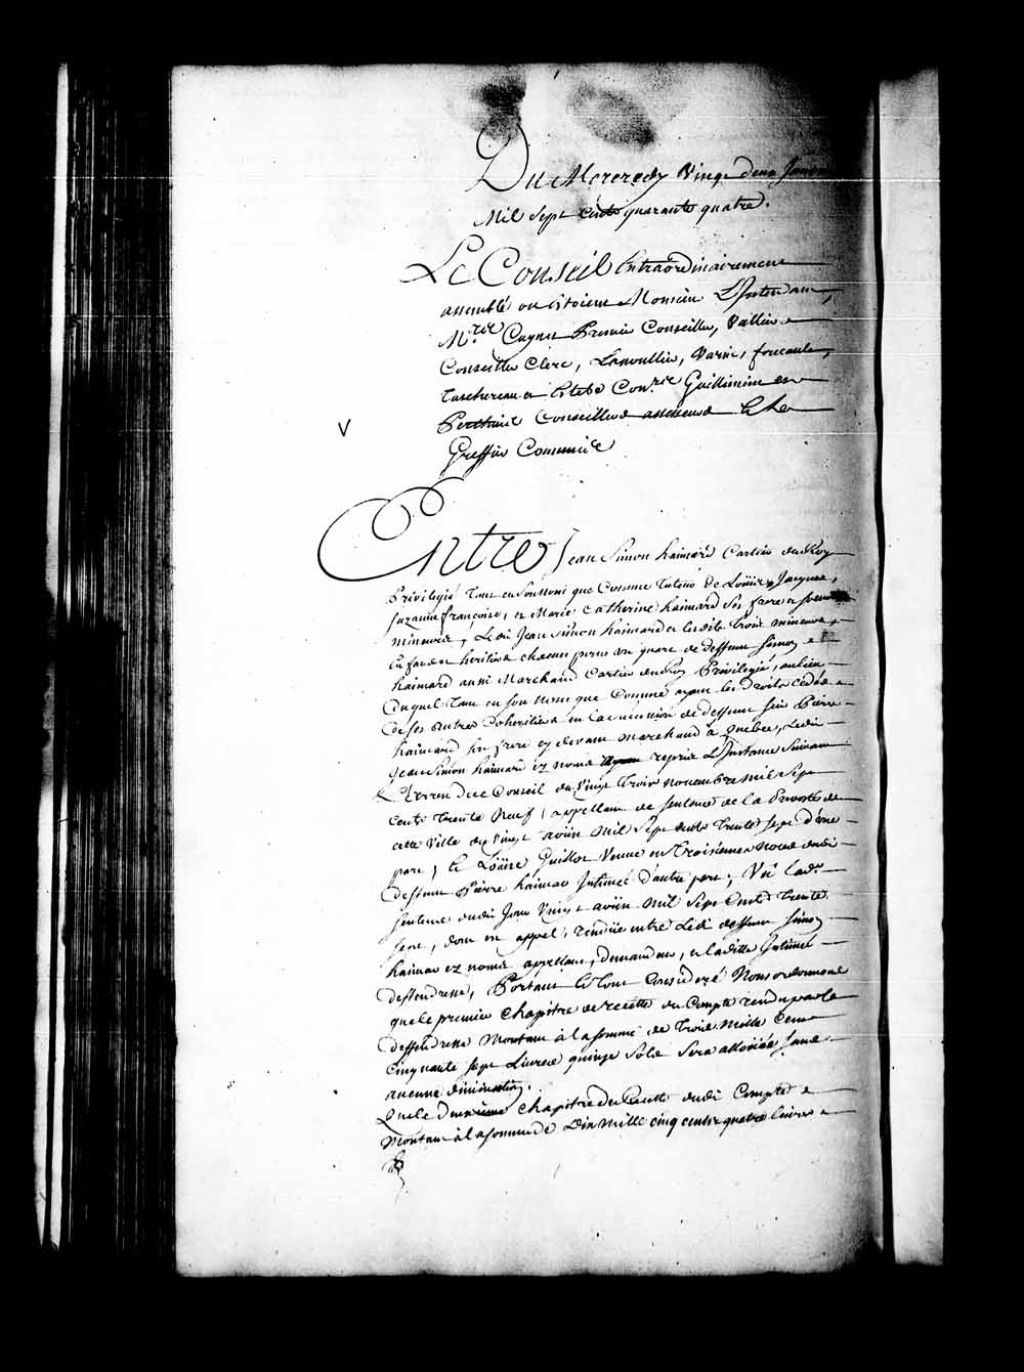 Du Mercredy Vingt deux Janvier
Mil Sept Cents quarante quatre.
Le Conseil Extraordinairement
assemblé ou Etoient Monsieur L'Intendant,
Mrs Cugnet Premier Conseiller, Vallier
Conseiller Clerc, Lanoullier, Varin, foucault,
Taschereau et Estebe Conrs Guillimin et
Perthuis Conseillers assesseurs et le
Greffier Commis
Entre Jean Simon haimard Cartier du Roy
Privilegié Tant en Son Nom que Comme Tuteur de Louis Jacques,
Suzanne françoise, et Marie Catherine haimard Ses frere et Soeurs
mineurs, Ledit Jean Simon haimard et lesdits trois mineurs
heritiers chacun pour un quart de deffunt Simon
haimard aussi Marchand Cartier du Roy Privilegié, au lieu
Duquel Tant en son Nom que Comme ayant les droits cédés
de Ses autres Coheritiers en la succession de deffunt Pierre
haimard Son frere cy devant Marchand à Quebec, Ledit
Jean Simon haimard ez noms repris L'Instance Suivant
L'Arrest du Conseil du Vingt Trois novembre mil Sept
Cents Trente Neuf, appellant de Sentence de la Prevosté de
cette Ville du Vingt avril Mil Sept Cents Trente Sept d'une
part, Et Loüise Guillot Veuve en Troisiemes Noces dudit
deffunt Pierre haimard Intimée d'autre part; Vû lade
Sentence dudit Jour Vingt avril Mil Sept Cents Trente
Sept, dont est appel, rendüe entre Ledit deffunt Simon
haimard ez noms appellant, demandeur, et ladite Intimée
deffenderesse, Portant Le Tout Consideré Nous ordonnons
que le premier Chapitre de recette du Compte rendu par la
deffenderesse Montant à la somme de Trois Mille Cent
Cinquante Sept Livres quinze Sols Sera alloüée Sans
aucune diminution.
Que le deuxieme Chapitre de Recette dudit Compte
Montant à la somme de Dix mille cinq cents quatre livres